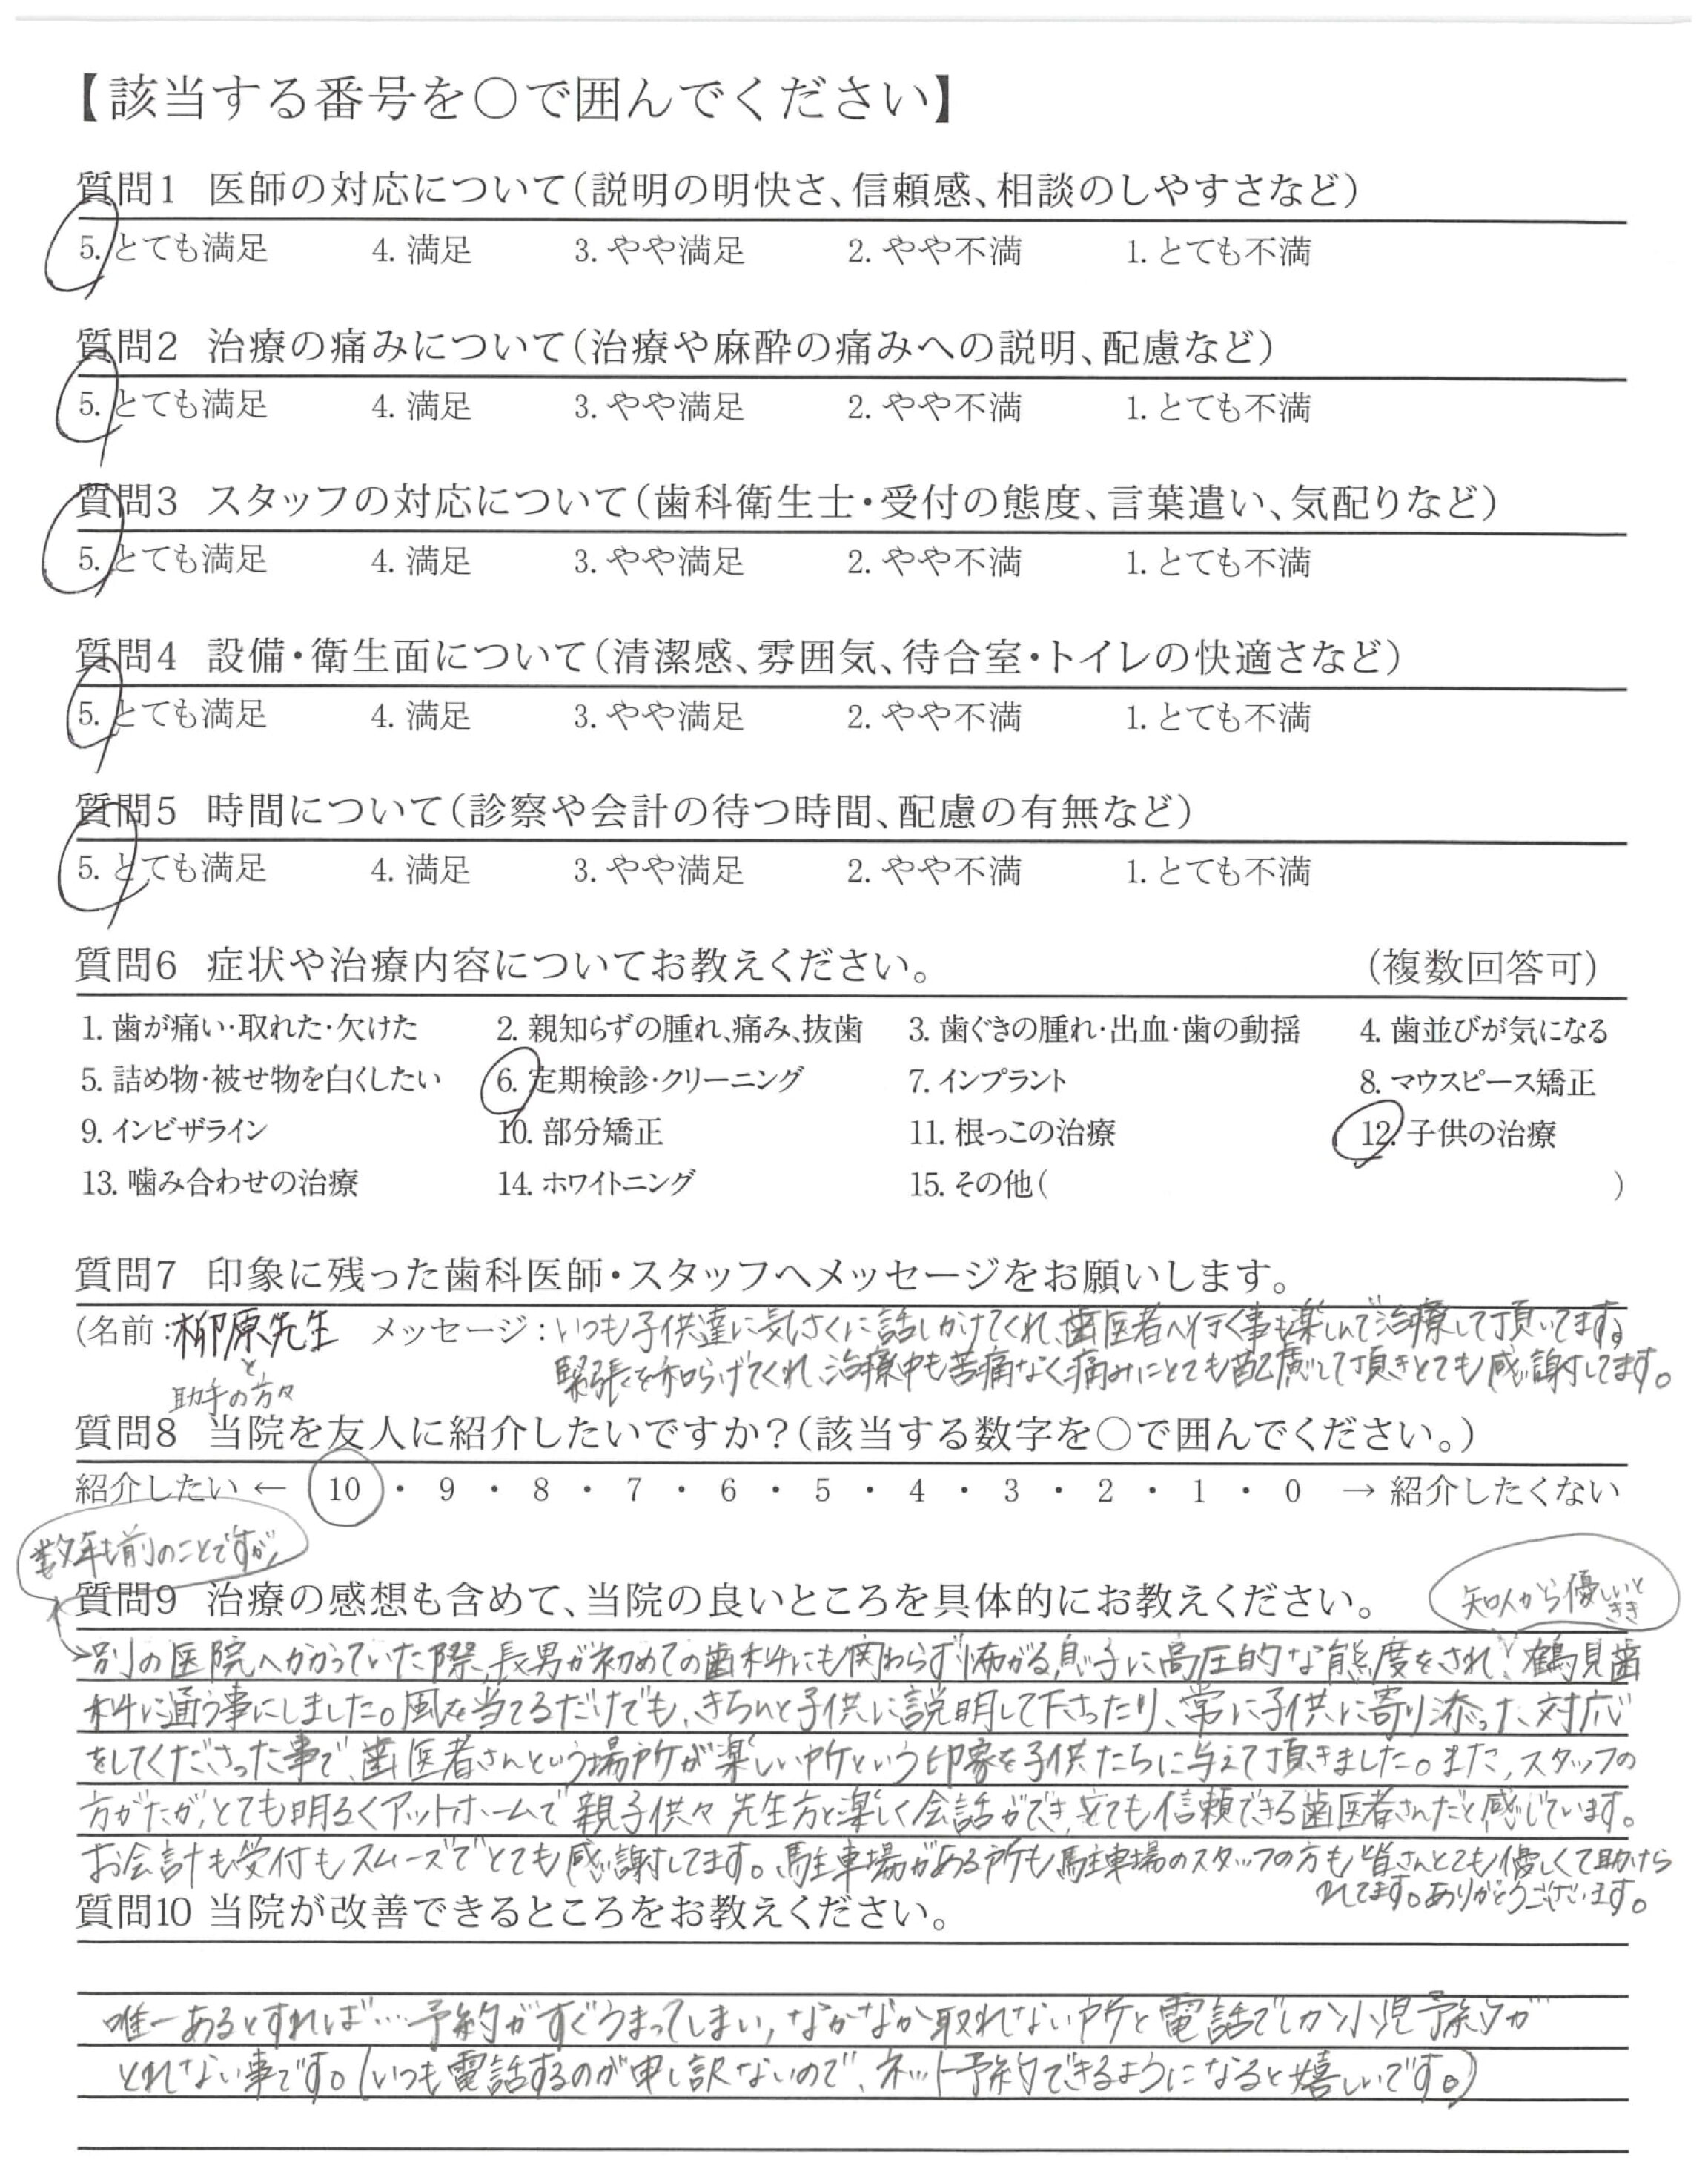 【該当する番号を〇で囲んでください】
質問1 医師の対応について（説明の明快さ、信頼感、相談のしやすさなど）
5. とても満足 4. 満足 3. やや満足 2. やや不満 1. とても不満
質問2 治療の痛みについて（治療や麻酔の痛みへの説明、配慮など）
5. とても満足 4. 満足 3. やや満足 2. やや不満 1. とても不満
質問3 スタッフの対応について（歯科衛生士・受付の態度、言葉遣い、気配りなど）
5. とても満足 4. 満足 3. やや満足 2. やや不満 1. とても不満
質問4 設備・衛生面について（清潔感、雰囲気、待合室・トイレの快適さなど）
5. とても満足 4. 満足 3. やや満足 2. やや不満 1. とても不満
質問5 時間について（診察や会計の待つ時間、配慮の有無など）
5. とても満足 4. 満足 3. やや満足 2. やや不満 1. とても不満
質問6 症状や治療内容についてお教えください。 （複数回答可）
1. 歯が痛い・取れた・欠けた 2. 親知らずの腫れ、痛み、抜歯 3. 歯ぐきの腫れ・出血・歯の動揺 4. 歯並びが気になる
5. 詰め物・被せ物を白くしたい 6. 定期検診・クリーニング 7. インプラント 8. マウスピース矯正
9. インビザライン 10. 部分矯正 11. 根っこの治療 12. 子供の治療
13. 噛み合わせの治療 14. ホワイトニング 15. その他（ ）
質問7 印象に残った歯科医師・スタッフへメッセージをお願いします。
（名前：柳原先生 メッセージ：いつも子供達に気さくに話しかけてくれ、歯医者へ行く事も楽しんで治療して頂いてます。
と
助手の方々
緊張を和らげてくれ、治療中も苦痛なく痛みにとても配慮して頂きとても感謝してます。
質問8 当院を友人に紹介したいですか？（該当する数字を〇で囲んでください。）
紹介したい ← 10 ・ 9 ・ 8 ・ 7 ・ 6 ・ 5 ・ 4 ・ 3 ・ 2 ・ 1 ・ 0 → 紹介したくない
数年も前のことですが、
質問9 治療の感想も含めて、当院の良いところを具体的にお教えください。
知人から優しいと
きき
別の医院へかかっていた際、長男が初めての歯科にも関わらず怖がる息子に高圧的な態度をされ、鶴見歯
科に通う事にしました。風を当てるだけでも、きちんと子供に説明して下さったり、常に子供に寄り添った対応
をしてくださった事で、歯医者さんという場所が楽しい所という印象を子供たちに与えて頂きました。また、スタッフの
方がたが、とても明るくアットホームで親子供々先生方と楽しく会話ができ、とても信頼できる歯医者さんだと感じています。
お会計も受付もスムーズでとても感謝してます。駐車場がある所も駐車場のスタッフの方も皆さんとても優しくて助けら
れてます。ありがとうございます。
質問10 当院が改善できるところをお教えください。
唯一あるとすれば…予約がすぐうまってしまい、なかなか取れない所と電話でしか小児予約が
とれない事です。（いつも電話するのが申し訳ないので、ネット予約できるようになると嬉しいです。）